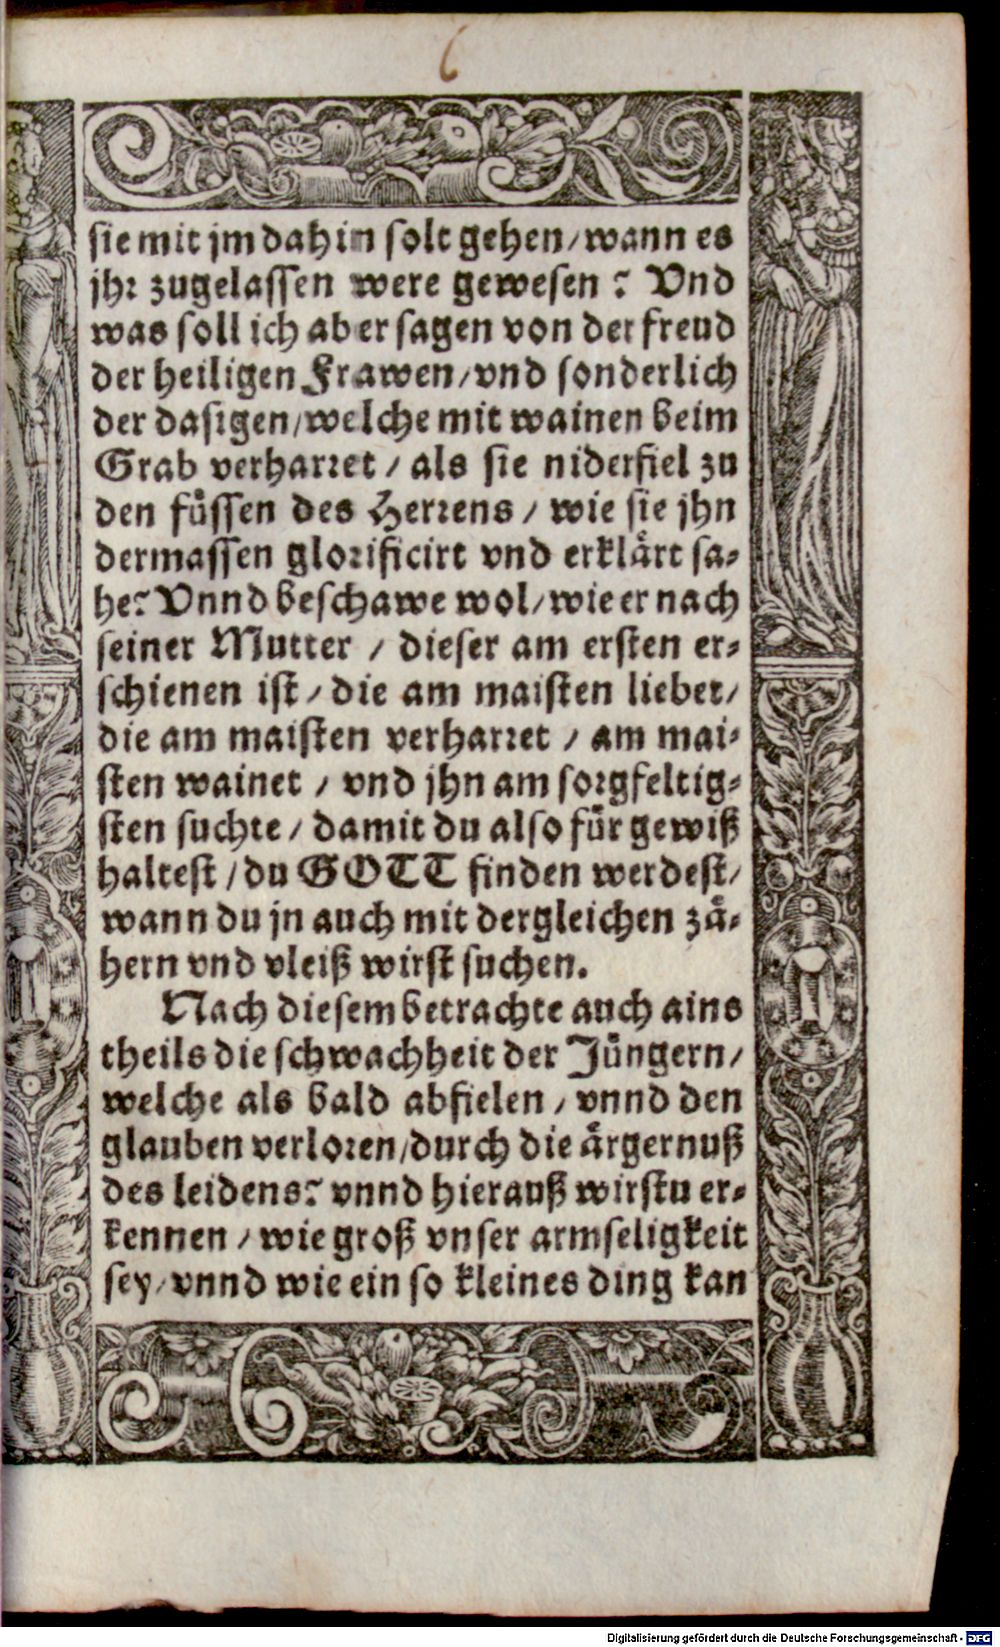 6
sie mit jm dahin solt gehen / wann es
jhr zugelassen were gewesen? Vnd
was soll ich aber sagen von der freud
der heiligen Frawen / vnd sonderlich
der dasigen / welche mit wainen beim
Grab verharret / als sie niderfiel zu
den fuͤssen des Herrens / wie sie jhn
dermassen glorificirt vnd erklaͤrt sa-
he? Vnnd beschawe wol / wie er nach
seiner Mutter / dieser am ersten er-
schienen ist / die am maisten liebet /
die am maisten verharret / am mai-
sten wainet / vnd jhn am sorgfeltig-
sten suchte / damit du also fuͤr gewiß
haltest / du GOTT finden werdest /
wann du jn auch mit dergleichen zaͤ-
hern vnd vleiß wirst suchen.
Nach diesem betrachte auch ains
theils die schwachheit der Juͤngern /
welche als bald abfielen / vnnd den
glauben verloren / durch die aͤrgernuß
des leidens? vnnd hierauß wirstu er-
kennen / wie groß vnser armseligkeit
sey / vnnd wie ein so kleines ding kan
Digitalisierung gefördert durch die Deutsche Forschungsgemeinschaft - DFG